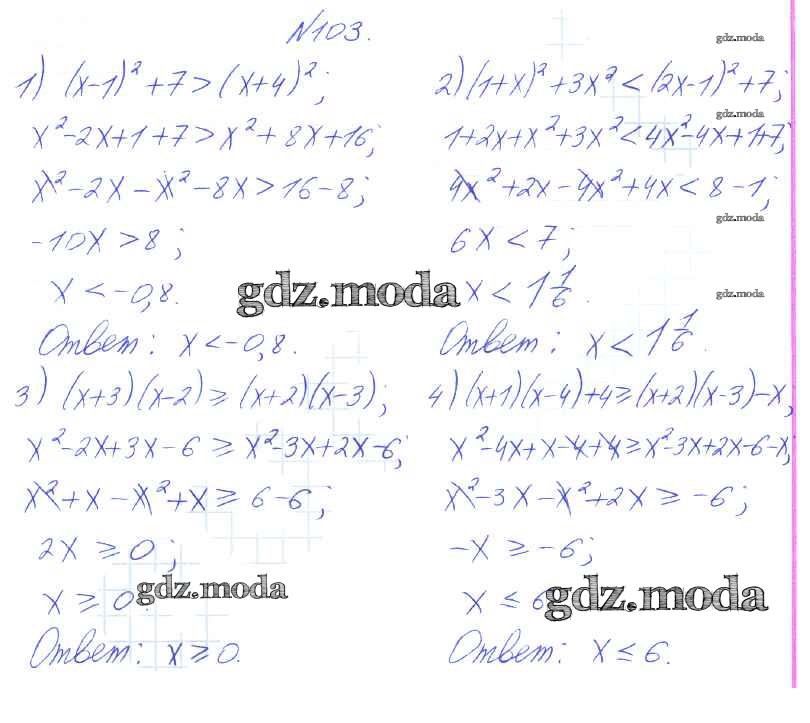 №103.
1) (x-1)² + 7 > (x+4)²;
x² - 2x + 1 + 7 > x² + 8x + 16;
x² - 2x - x² - 8x > 16 - 8;
-10x > 8;
x < -0,8.
Ответ: x < -0,8.
2) (1+x)² + 3x² < (2x-1)² + 7;
1 + 2x + x² + 3x² < 4x² - 4x + 1 + 7;
4x² + 2x - 4x² + 4x < 8 - 1;
6x < 7;
x < 1 1/6.
Ответ: x < 1 1/6.
3) (x+3)(x-2) ≥ (x+2)(x-3);
x² - 2x + 3x - 6 ≥ x² - 3x + 2x - 6;
x² + x - x² + x ≥ 6 - 6;
2x ≥ 0;
x ≥ 0.
Ответ: x ≥ 0.
4) (x+1)(x-4) + 4 ≥ (x+2)(x-3) - x;
x² - 4x + x - 4 + 4 ≥ x² - 3x + 2x - 6 - x;
x² - 3x - x² + 2x ≥ -6;
-x ≥ -6;
x ≤ 6
Ответ: x ≤ 6.
gdz.moda
gdz.moda
gdz.moda
gdz.moda
gdz.moda
gdz.moda
gdz.moda